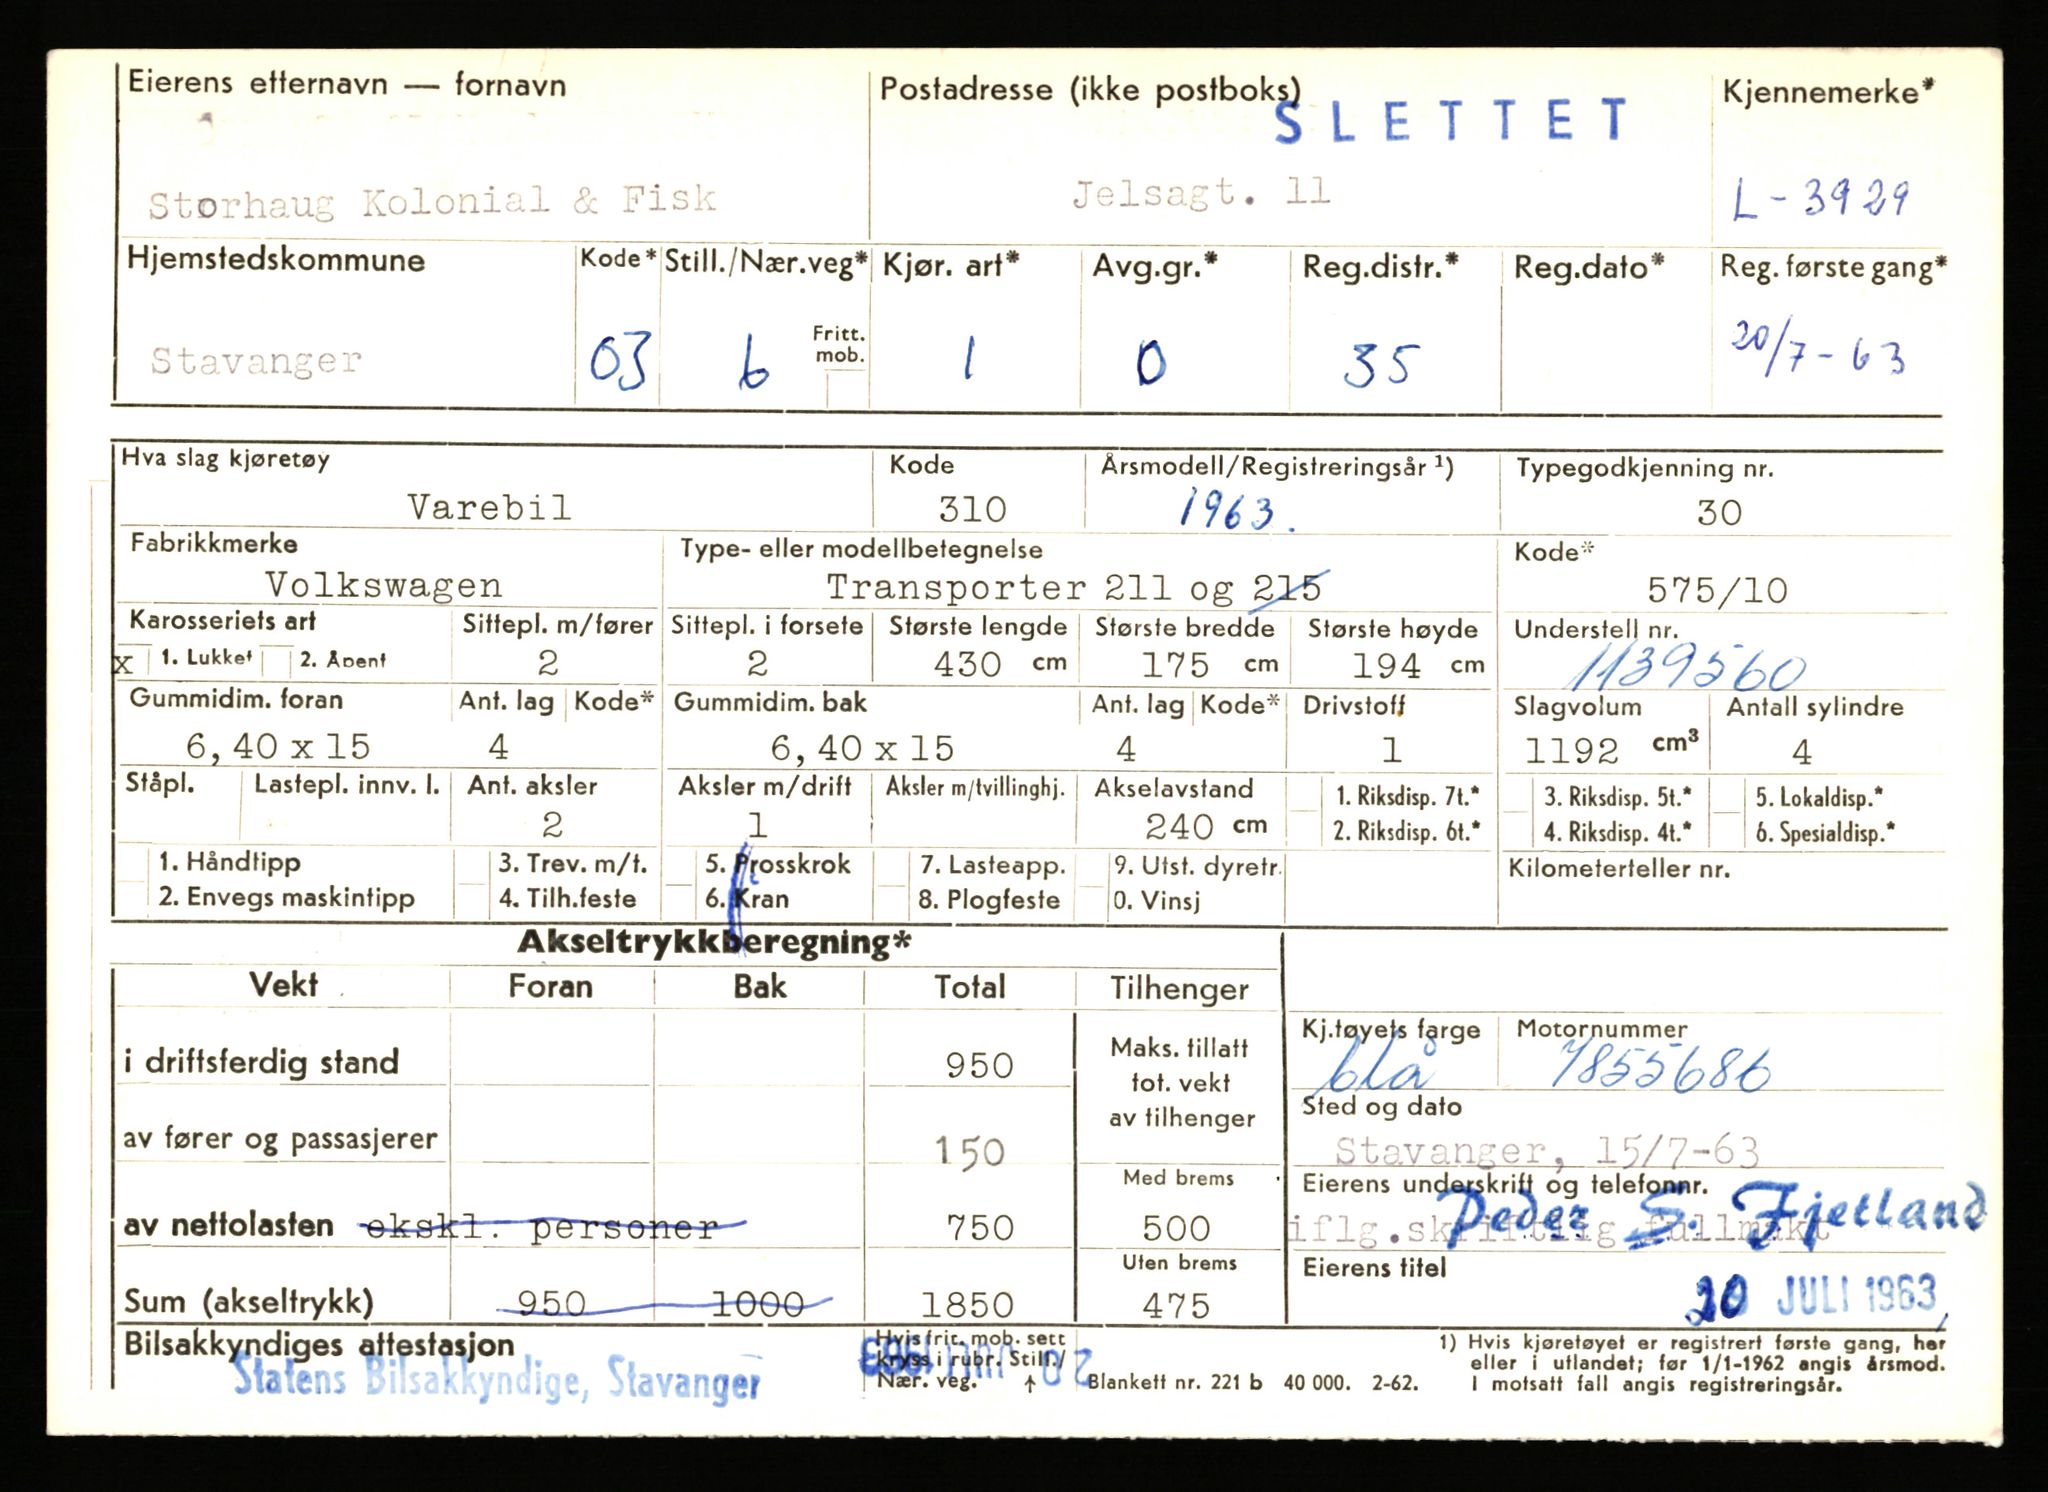 Eierens etternavn — fornavn
Postadresse (ikke postboks)
Kjennemerke*
SLETTET
Storhaug Kolonial & Fisk
Jelsagt. 11
L-3929
Hjemstedskommune
Kode*
Still./Nær.veg*
Kjør. art*
Avg.gr.*
Reg.distr.*
Reg.dato*
Reg. første gang*
Stavanger
03
6
Fritt. mob.
1
0
35
20/7-63
Hva slag kjøretøy
Kode
Årsmodell/Registreringsår ¹)
Typegodkjenning nr.
Varebil
310
1963.
30
Fabrikkmerke
Type- eller modellbetegnelse
Kode*
Volkswagen
Transporter 211 og 215
575/10
Karosseriets art
Sittepl. m/fører
Sittepl. i forsete
Største lengde
Største bredde
Største høyde
Understell nr.
x 1. Lukket 2. Åpent
2
2
430 cm
175 cm
194 cm
1139560
Gummidim. foran
Ant. lag
Kode*
Gummidim. bak
Ant. lag
Kode*
Drivstoff
Slagvolum
Antall sylindre
6,40 x 15
4
6,40 x 15
4
1
1192 cm³
4
Ståpl.
Lastepl. innv. l.
Ant. aksler
Aksler m/drift
Aksler m/tvillinghj.
Akselavstand
1. Riksdisp. 7t.*
3. Riksdisp. 5t.*
5. Lokaldisp.*
2
1
240 cm
2. Riksdisp. 6t.*
4. Riksdisp. 4t.*
6. Spesialdisp.*
1. Håndtipp
3. Trev. m/t.
5. Prosskrok
7. Lasteapp.
9. Utst. dyretr.
Kilometerteller nr.
2. Envegs maskintipp
4. Tilh.feste
6. Kran
8. Plogfeste
0. Vinsj
Akseltrykkberegning*
Vekt
Foran
Bak
Total
Tilhenger
Kj.tøyets farge
Motornummer
i driftsferdig stand
950
Maks. tillatt
tot. vekt
av tilhenger
blå
7855686
Sted og dato
av fører og passasjerer
150
Stavanger, 15/7-63
Med brems
Eierens underskrift og telefonnr.
av nettolasten ekskl. personer
750
500
Peder S. Fjetland
iflg.skriftlig fullmakt
Uten brems
Eierens titel
Sum (akseltrykk)
950
1000
1850
475
20 JULI 1963
Bilsakkyndiges attestasjon
Statens Bilsakkyndige, Stavanger
Hvis frit. mob. sett
kryss i rubr. Still./
Nær. veg. ↑
20 JULI 1963
Blankett nr. 221 b 40 000. 2-62.
1) Hvis kjøretøyet er registrert første gang, her
eller i utlandet; før 1/1-1962 angis årsmod.
I motsatt fall angis registreringsår.